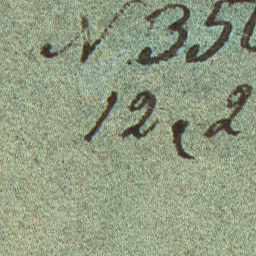 N. 350
12,2